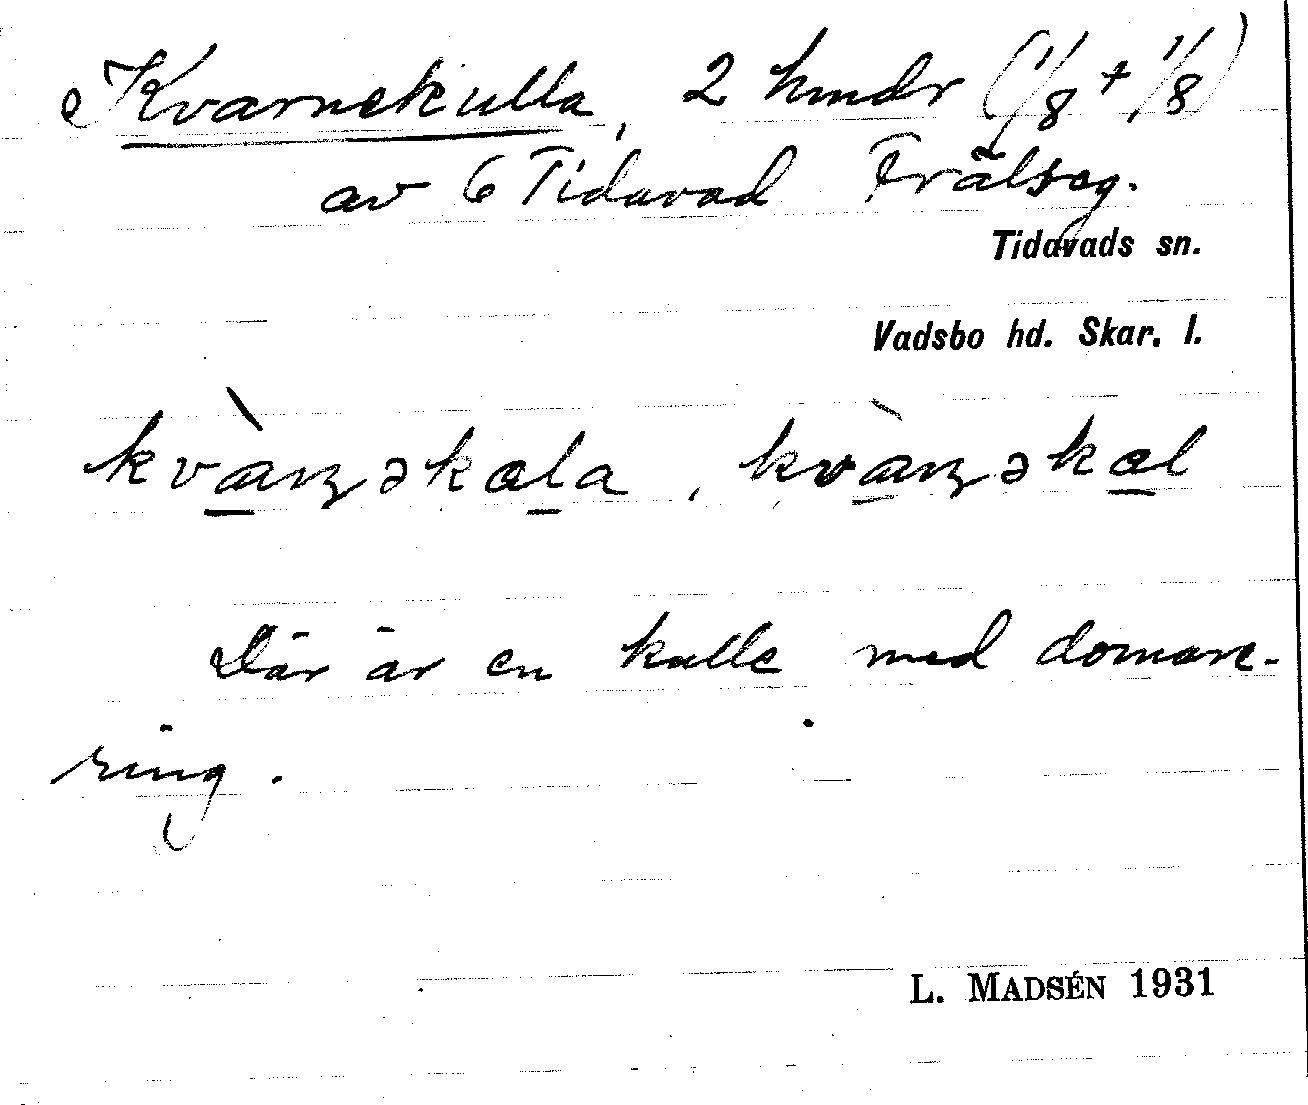 Kvarnekulla, 2 hmdr (1/8 + 1/8)
av 6 Tidavad Frälseg.
Tidavads sn.
Vadsbo hd. Skar. l.
kvàɳəkala, kvàɳəkal
Där är en kulle med domare-
ring.
L. MADSÉN 1931